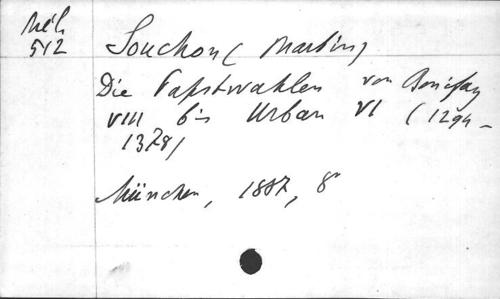 Méh
512
Souchon (Martin)
Die Papstwahlen von Bonifaz
VIII bis Urban VI (1294-
1378)
München, 1887, 8°